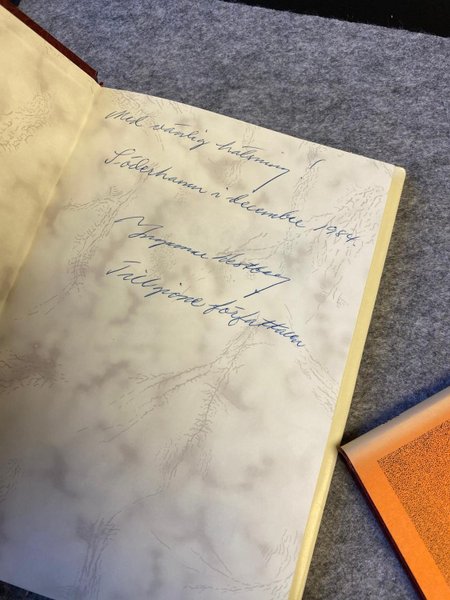 Med vänlig hälsning!
Söderhamn i december 1984.
Tillgivne författaren